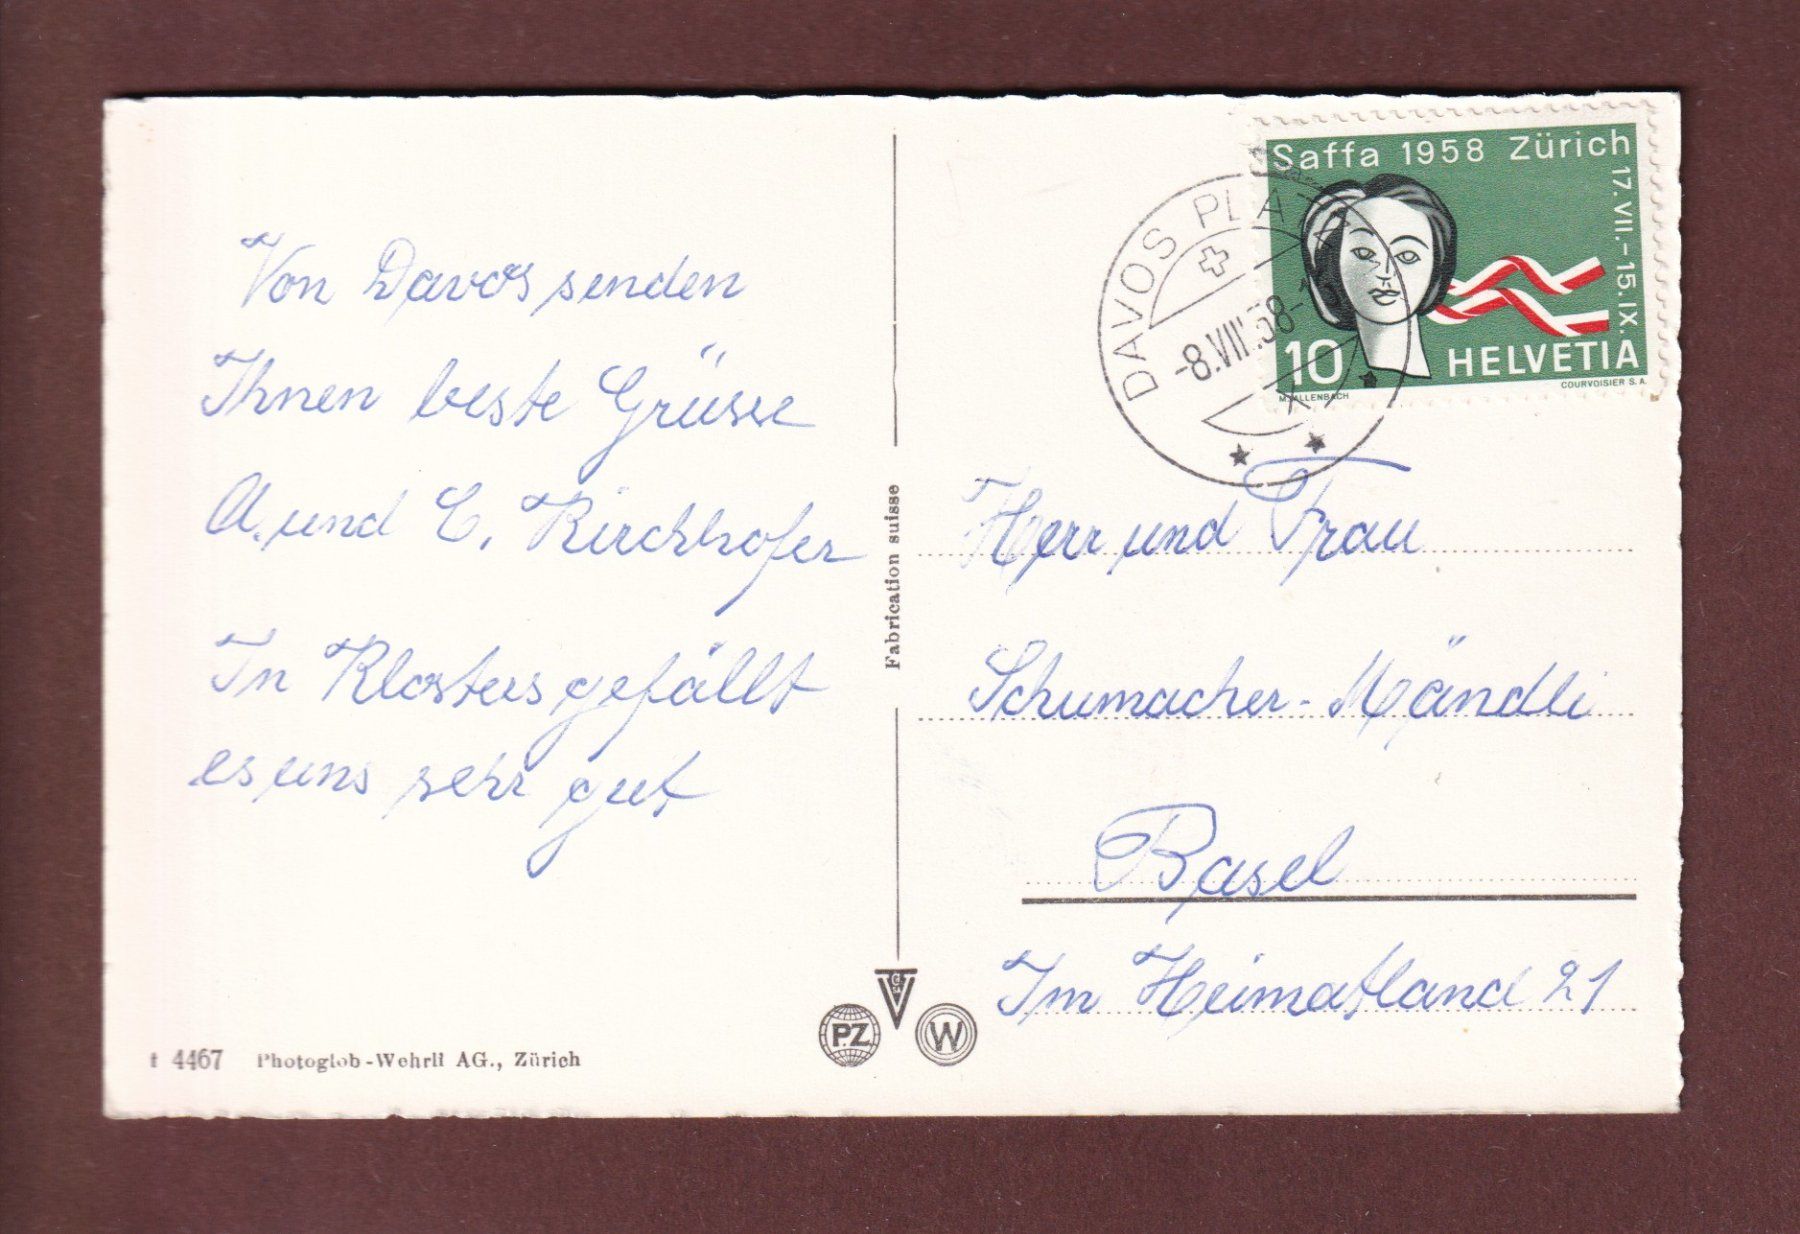 Von Davos senden
Ihnen beste Grüsse
A. und E. Kirchhofer
In Klosters gefällt
es uns sehr gut
t 4467 Photoglob-Wehrli AG., Zürich
Fabrication suisse
P.Z.
W
Saffa 1958 Zürich
17.VII.-15.IX.
10 HELVETIA
COURVOISIER S.A.
DAVOS PLATZ
-8.VIII.58-
Herr und Frau
Schumacher-Mändli
Basel
Im Heimatland 21